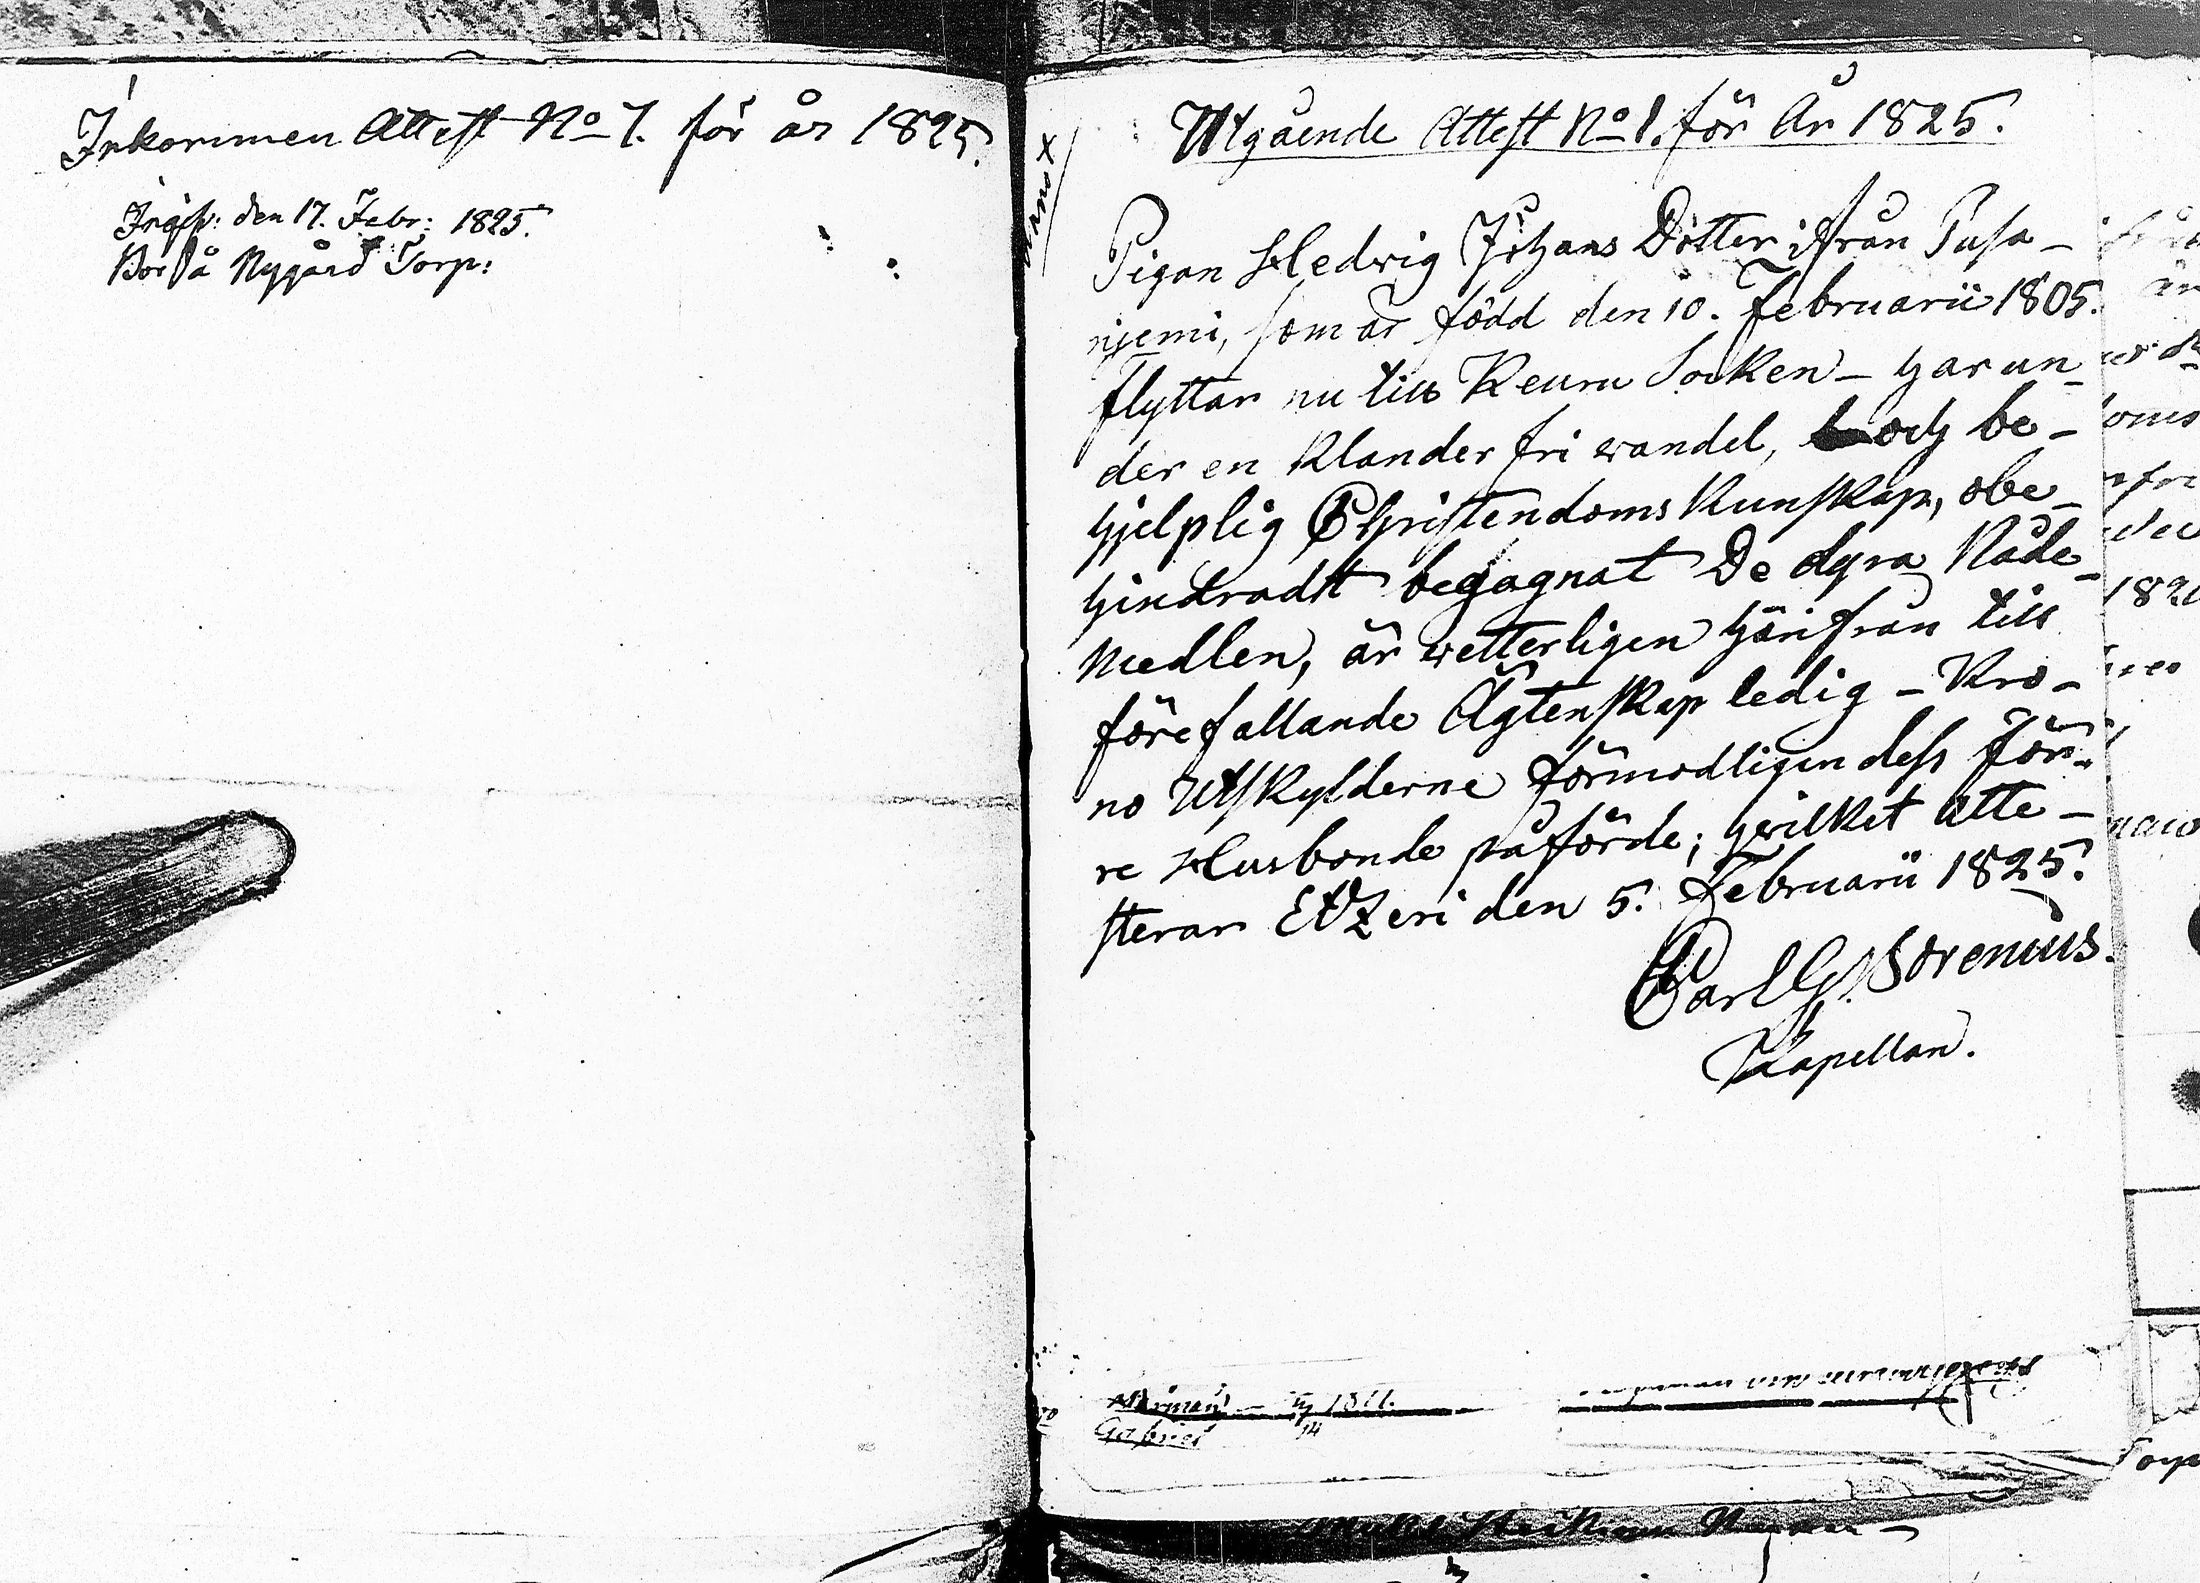 Inkommen Attest No 7. för år 1825.
Ingifv: den 17. Febr: 1825.
Bor på Nygård Torp:
Utgående Attest No 1. för År 1825.
Pigan Hedvig Johans Dotter ifrån Pusa-
njemi, som är född den 10. Februarii 1805.
flyttar nu till Keuru Socken - har un-
der en klander fri wandel, och be-
hjelplig Christendoms Kunskap, obe-
hindradt begagnat De dyra Nåde-
medlen, är wetterligen härifrån till
förefallande Ägtenskap ledig - Kro-
no Utskylderne förmodligen dess förr-
re Husbonde påförde; hvilket atte-
sterar Etzeri den 5. Februarii 1825.
Carl G. Borenius.
Kapellan.
Gabriel
Torp